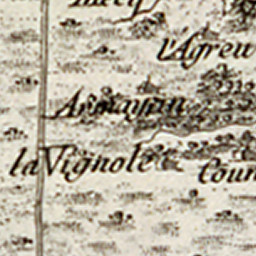 l'Agreu
Armayan
la Vignole
Cour